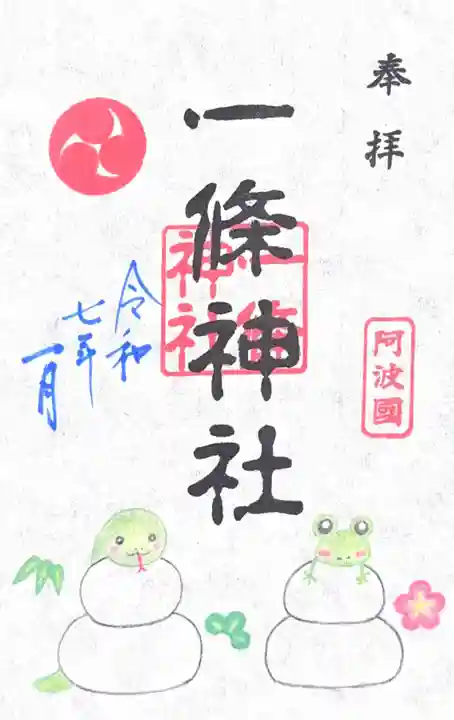 奉拝
一條神社
一條神社
阿波國
令和
七年
一月